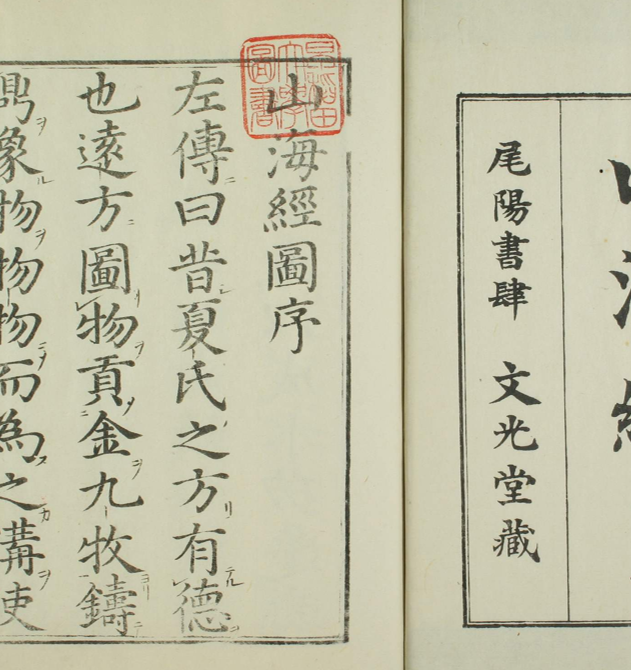 山海經
尾陽書肆 文光堂藏
早稻田大學圖書
山海經圖序
左傳曰昔夏氏之方有德
也遠方圖物貢金九牧鑄
鼎象物物物而為之備使